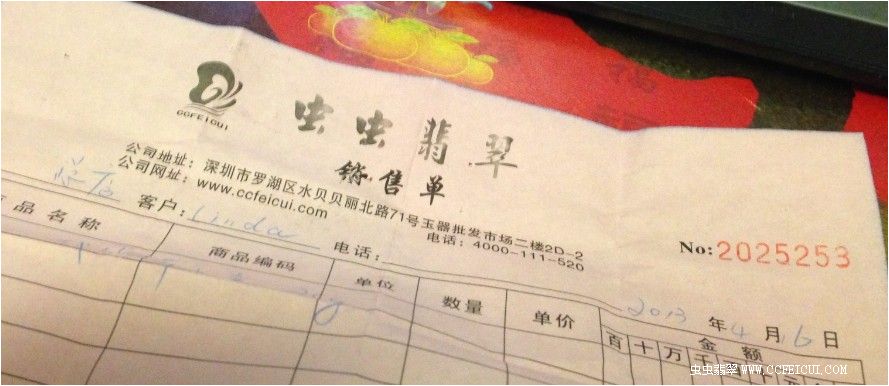 CCFEICUI
虫虫翡翠
销售单
公司地址：深圳市罗湖区水贝贝丽北路71号玉器批发市场二楼2D-2
公司网址：www.ccfeicui.com 电话：4000-111-520
No: 2025253
客户：Linda 电话：
2013 年 4 月 6 日
商品名称 商品编码 单位 数量 单价 金额
百 十 万 千
虫虫翡翠 WWW.CCFEICUI.COM